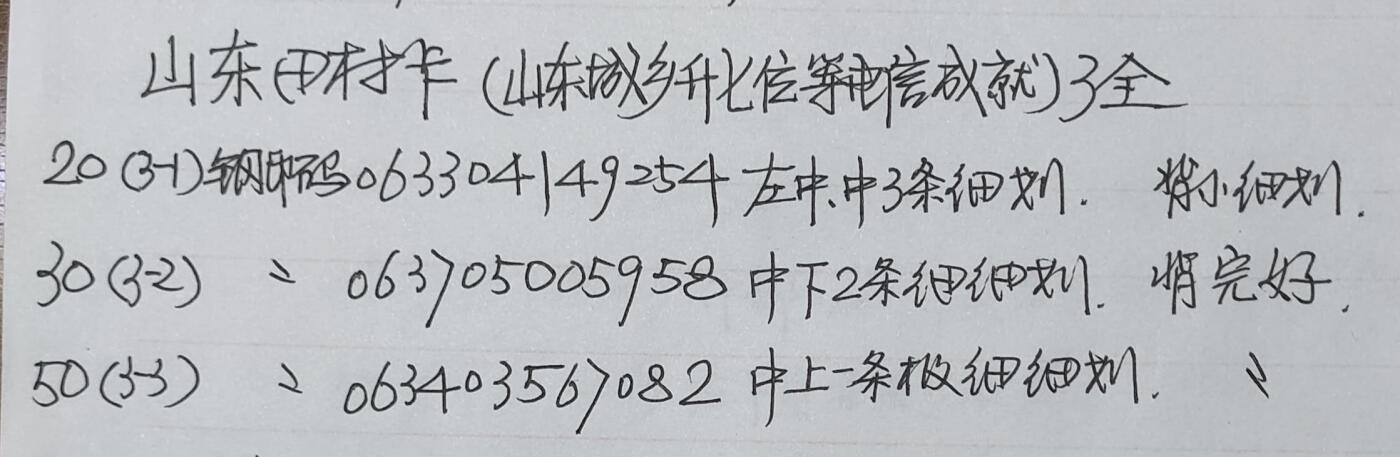 山东田村卡(山东城乡升七位等电信成就)3全
20(3-1)钢印码063304149254左中、中3条细划. 背小细划.
30(3-2) 〃 063705005958中下2条细细划. 背完好.
50(3-3) 〃 063403567082中上一条极细细划. 〃